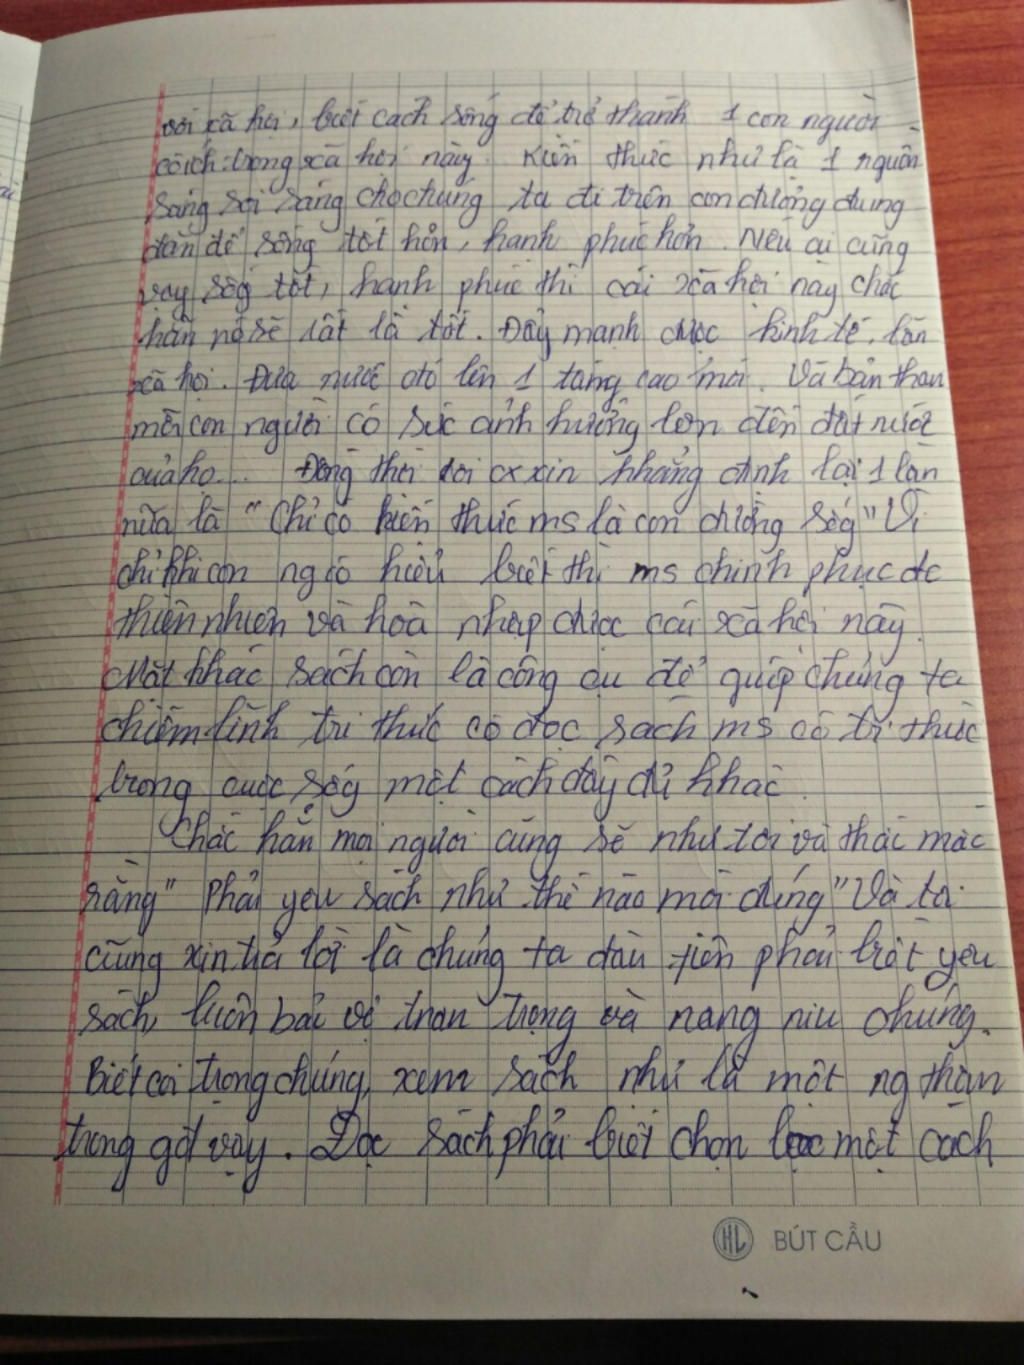 với xã hội, biết cách sống để trở thành 1 con người
có ích trong xã hội này. Kiến thức như là 1 nguồn
sáng soi sáng cho chúng ta đi trên con đường đúng
đắn để sống tốt hơn, hạnh phúc hơn. Nếu ai cũng
vậy sốg tốt, hạnh phúc thì cái xã hội này chắc
hẳn nó sẽ rất là tốt. Đẩy mạnh được kinh tế, lẫn
xã hội. Đưa nước đó lên 1 tầng cao mới. Và bản thân
mỗi con người có sức ảnh hưởng lớn đến đất nước
của họ... Đồng thời tôi cx xin khẳng định lại 1 lần
nữa là "Chỉ có kiến thức ms là con đường sốg" Vì
chỉ khi con ng có hiểu biết thì ms chinh phục đc
thiên nhiên và hoà nhập được cái xã hội này.
Mặt khác sách còn là công cụ để giúp chúng ta
chiếm lĩnh tri thức có đọc sách ms có tri thức
trong cuộc sốg một cách đầy đủ khác.
Chắc hẳn mọi người cũng sẽ như tôi và thắc mắc
rằng" Phải yêu sách như thế nào mới đúng" Và tôi
cũng xin trả lời là chúng ta đầu tiên phải biết yêu
sách, luôn bảo vệ trân trọng và nâng niu chúng.
Biết coi trọng chúng, xem sách như là một ng thân
trong gđ vậy. Đọc sách phải biết chọn lọc một cách
HL BÚT CẦU